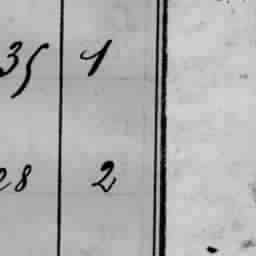 35 1
28 2